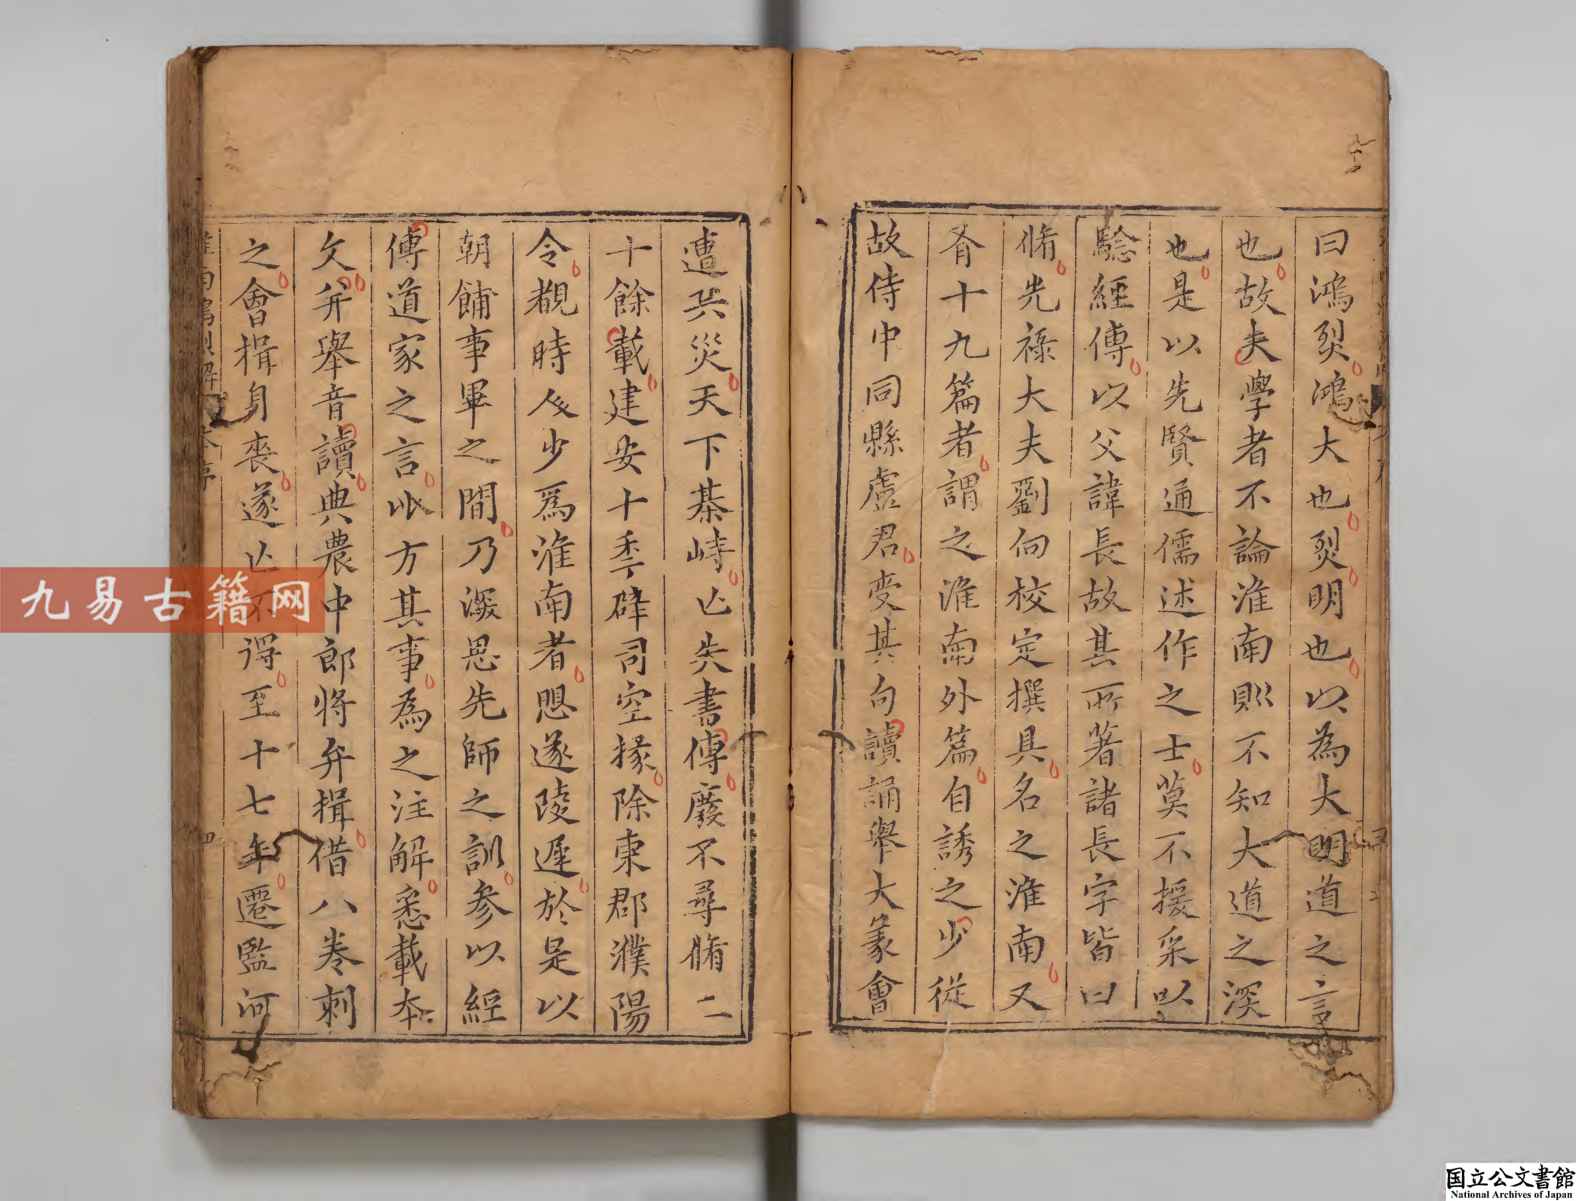 曰鴻烈鴻大也烈明也以為大明道之言
也故夫學者不論淮南則不知大道之深
也是以先賢通儒述作之士莫不援采以
驗經傳以父諱長故其所著諸長字皆曰
脩光祿大夫劉向校定撰具名之淮南又
有十九篇者謂之淮南外篇自誘之少從
故侍中同縣盧君受其句讀誦舉大義會
遭兵災天下棊峙亡失書傳廢不尋脩二
十餘載建安十年辟司空掾除東郡濮陽
令覩時人少為淮南者懼遂陵遲於是以
朝餔事畢之間乃深思先師之訓參以經
傳道家之言比方其事為之注解悉載本
文并舉音讀典農中郎將弁揖借八卷刺
之會揖身喪遂亡不得至十七年遷監河
九易古籍网
国立公文書館
National Archives of Japan